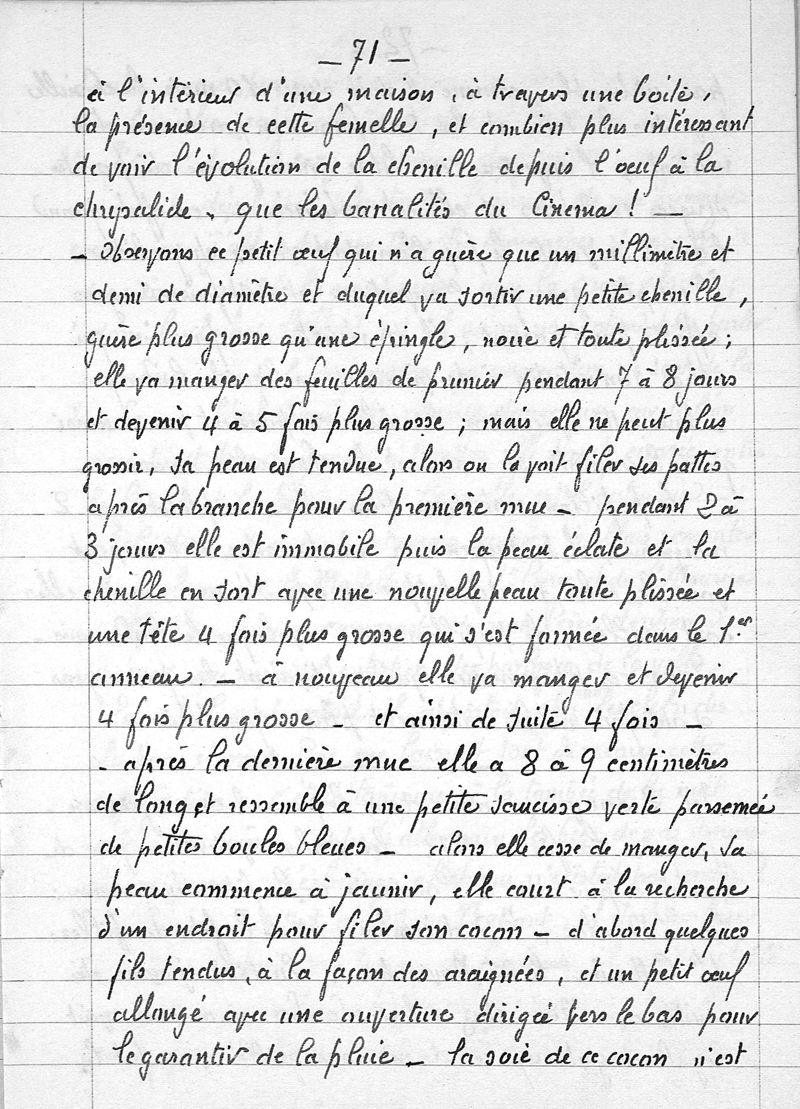 — 71 —
à l'intérieur d'une maison, à travers une boîte,
la présence de cette femelle, et combien plus intéressant
de voir l'évolution de la chenille depuis l'oeuf à la
chrysalide, que les banalités du Cinema ! —
— Observons ce petit œuf qui n'a guère que un millimètre et
demi de diamètre et duquel va sortir une petite chenille,
guère plus grosse qu'une épingle, noire et toute plissée ;
elle va manger des feuilles de prunier pendant 7 à 8 jours
et devenir 4 à 5 fois plus grosse ; mais elle ne peut plus
grossir, sa peau est tendue, alors on la voit filer ses pattes
après la branche pour la première mue — pendant 2 à
3 jours elle est immobile puis la peau éclate et la
chenille en sort avec une nouvelle peau toute plissée et
une tête 4 fois plus grosse qui s'est formée dans le 1er
anneau. — à nouveau elle va manger et devenir
4 fois plus grosse — et ainsi de suite 4 fois —
- après la dernière mue elle a 8 à 9 centimètres
de long et ressemble à une petite saucisse verte parsemée
de petites boules bleues — alors elle cesse de manger, sa
peau commence à jaunir, elle court à la recherche
d'un endroit pour filer son cocon — d'abord quelques
fils tendus, à la façon des araignées, et un petit œuf
allongé avec une ouverture dirigée vers le bas pour
le garantir de la pluie — la soie de ce cocon n'est